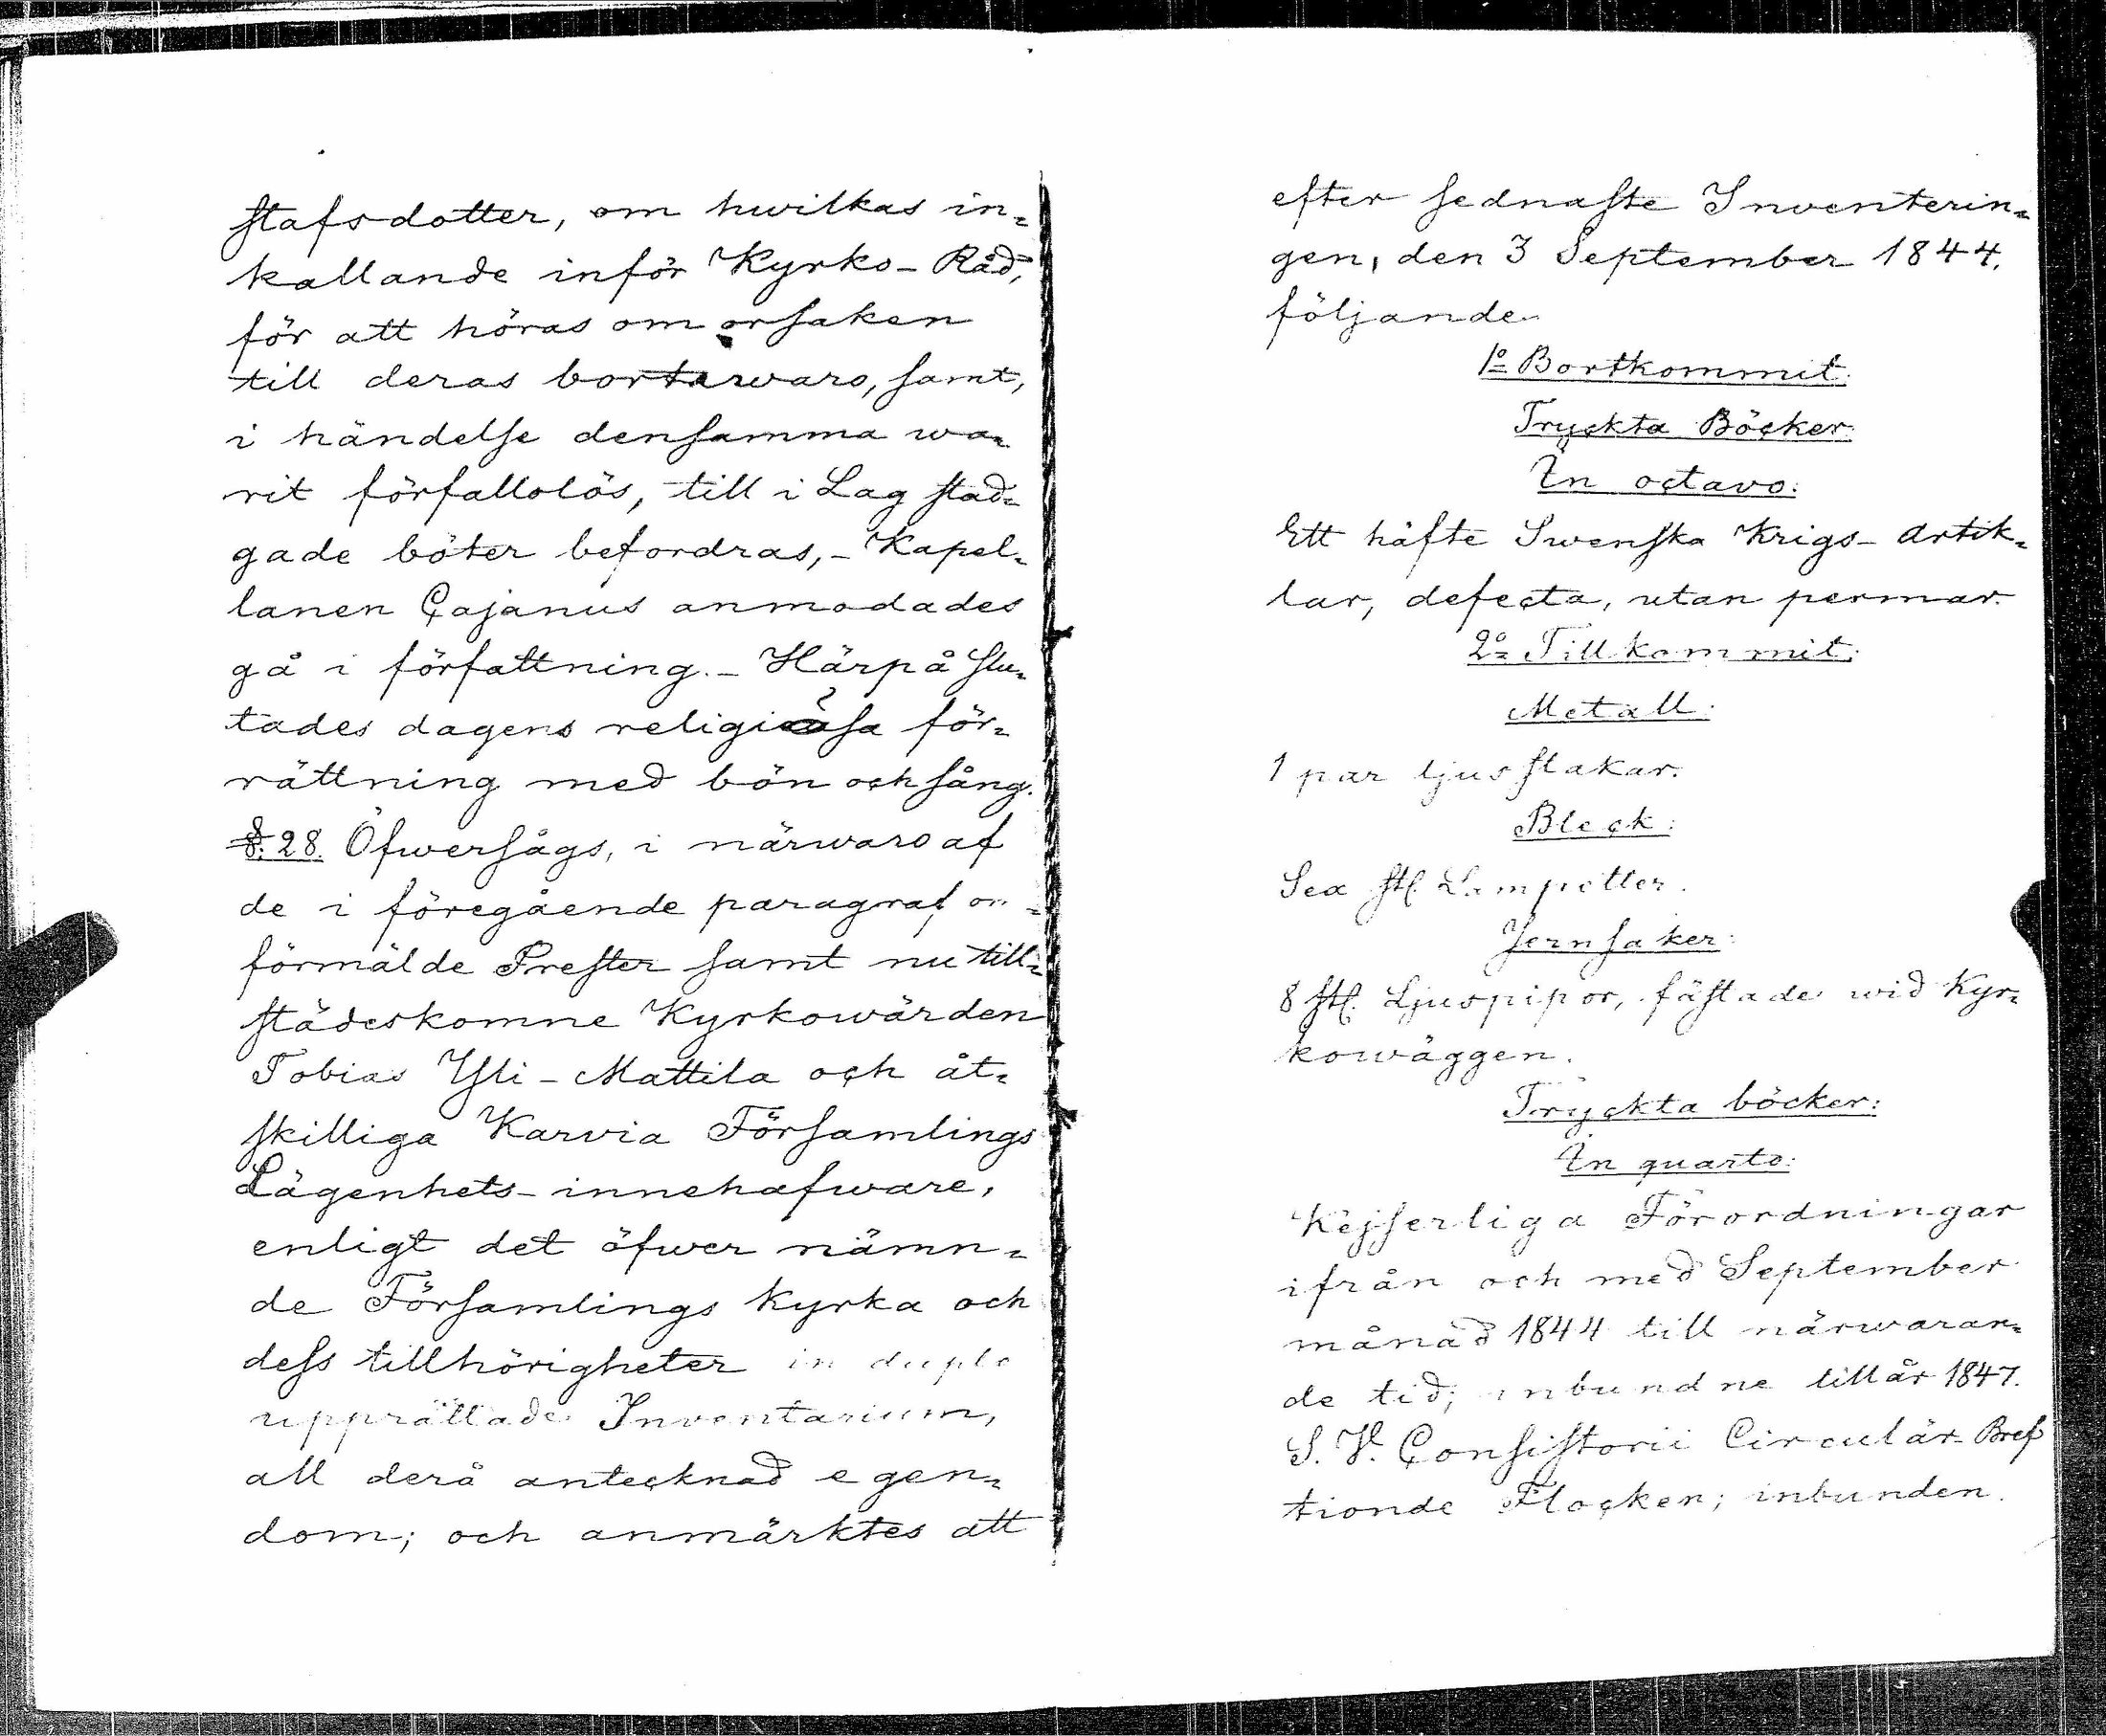 stafsdotter, om hwilkas in=
kallande inför Kyrko-Råd,
för att höras om orsaken
till deras bortawaro, samt,
i händelse densamma wa=
rit förfallolös, till i Lag stad=
gade böter befordras, - Kapel=
lanen Cajanus anmodades
gå i författning. - Härpå slu=
tades dagens religiösa för=
rättning med bön och sång.
§. 28. Öfwersågs, i närwaro af
de i föregående paragraf om=
förmälde Prester samt nu till=
städeskomne Kyrkowärden
Tobias Yli-Mattila och åt=
skilliga Karvia Församlings
Lägenhets-innehafware,
enligt det öfwer nämn=
de Församlings Kyrka och
dess tillhörigheter in duplo
upprättade Inventarium,
all derå antecknad egen=
dom; och anmärktes att
efter sednaste Inventerin=
gen, den 3 September 1844.
följande
1º Bortkommit.
Tryckta Böcker.
In octavo:
Ett häfte Swenska Krigs-Artik=
lar, defecta, utan permar.
2º Tillkommit.
Metall:
1 par ljusstakar.
Bleck:
Sex st. Lampetter.
Jernsaker:
8 st. Ljuspipor, fästade wid Kyr=
kowäggen.
Tryckta böcker:
In quarto:
Kejserliga Förordningar
ifrån och med September
månad 1844 till närwaran=
de tid; inbundne till år 1847.
S. V. Consistorii Circulär-Bref
tionde Flocken; inbunden.